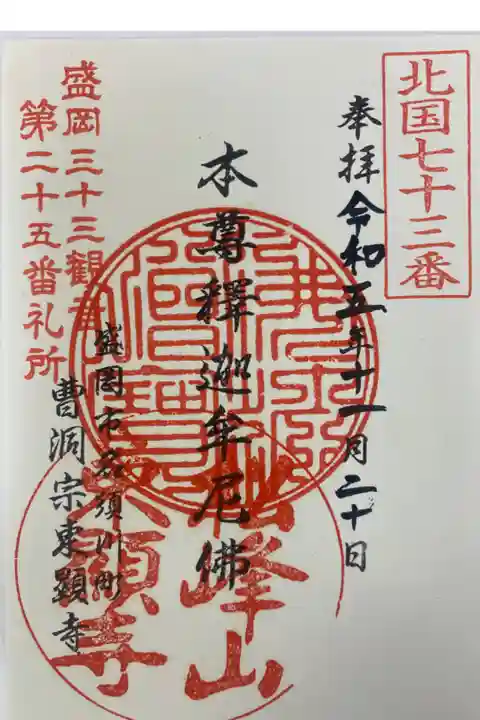 北国七十三番
奉拝 令和五年十一月二十日
本尊釋迦牟尼佛
盛岡市名須川町
曹洞宗東顕寺
盛岡三十三観音
第二十五番札所
峰山
東顕寺